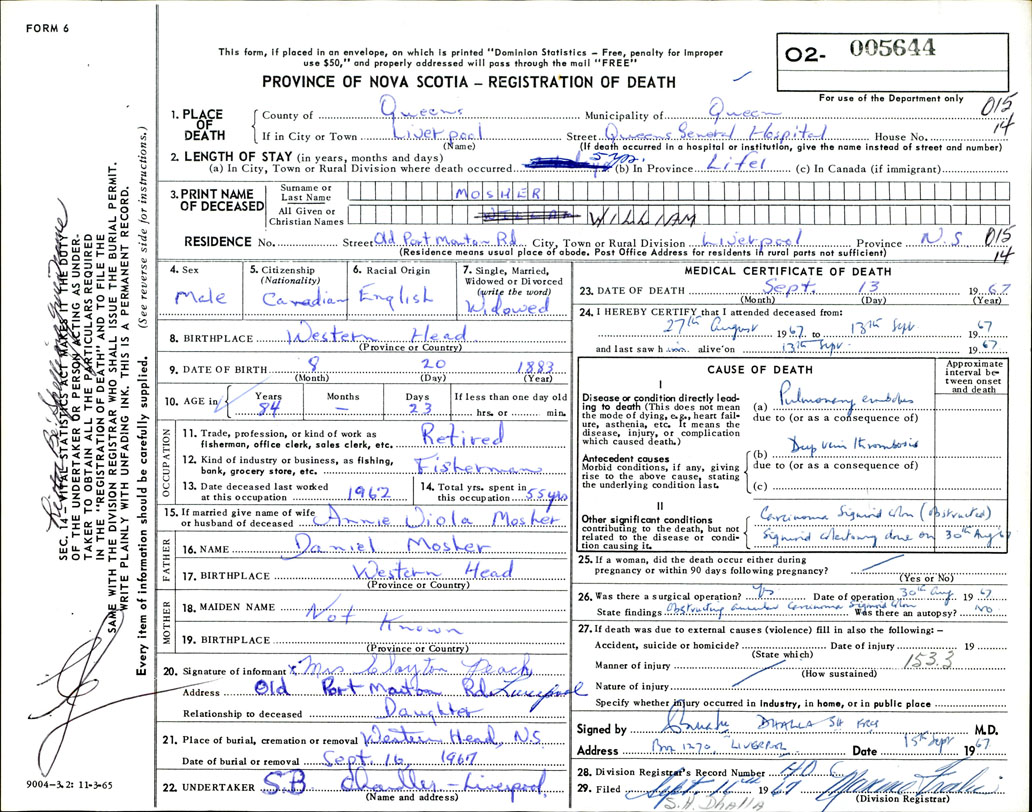 FORM 6
This form, if placed in an envelope, on which is printed "Dominion Statistics – Free, penalty for improper
use $50," and properly addressed will pass through the mail "FREE"
PROVINCE OF NOVA SCOTIA – REGISTRATION OF DEATH
02- 005644
For use of the Department only
015
14
1. PLACE OF DEATH
County of Queens Municipality of Queen
If in City or Town Liverpool Street Queens General Hospital House No.
(Name) (If death occurred in a hospital or institution, give the name instead of street and number)
2. LENGTH OF STAY (in years, months and days)
(a) In City, Town or Rural Division where death occurred 5 yrs. (b) In Province Life (c) In Canada (if immigrant)
3. PRINT NAME OF DECEASED
Surname or Last Name MOSHER
All Given or Christian Names WILLIAM
RESIDENCE No. Street Old Port Mouton Rd City, Town or Rural Division Liverpool Province N.S 015
(Residence means usual place of abode. Post Office Address for residents in rural parts not sufficient) 14
4. Sex
Male
5. Citizenship
(Nationality)
Canadian
6. Racial Origin
English
7. Single, Married,
Widowed or Divorced
(write the word)
Widowed
8. BIRTHPLACE Western Head
(Province or Country)
9. DATE OF BIRTH 8 20 1883
(Month) (Day) (Year)
10. AGE in Years Months Days If less than one day old
84 – 23 hrs. or min.
OCCUPATION
11. Trade, profession, or kind of work as
fisherman, office clerk, sales clerk, etc. Retired
12. Kind of industry or business, as fishing,
bank, grocery store, etc. Fisherman
13. Date deceased last worked
at this occupation 1962
14. Total yrs. spent in
this occupation 55 yrs
15. If married give name of wife
or husband of deceased Annie Viola Mosher
FATHER
16. NAME Daniel Mosher
17. BIRTHPLACE Western Head
(Province or Country)
MOTHER
18. MAIDEN NAME Not Known
19. BIRTHPLACE
(Province or Country)
20. Signature of informant x Mrs Clayton Leach
Address Old Port Mouton Rd Liverpool
Relationship to deceased Daughter
21. Place of burial, cremation or removal Western Head, N.S
Date of burial or removal Sept. 16, 1967
22. UNDERTAKER SB Chandler Liverpool
(Name and address)
MEDICAL CERTIFICATE OF DEATH
23. DATE OF DEATH Sept. 13 1967
(Month) (Day) (Year)
24. I HEREBY CERTIFY that I attended deceased from:
27th August 1967 to 13th Sept 67
and last saw h im alive on 13th Sept 1967
CAUSE OF DEATH
Approximate
interval be-
tween onset
and death
I
Disease or condition directly lead-
ing to death (This does not mean
the mode of dying, e.g., heart fail-
ure, asthenia, etc. It means the
disease, injury, or complication
which caused death.)
(a) Pulmonary embolus
due to (or as a consequence of)
Antecedent causes
Morbid conditions, if any, giving
rise to the above cause, stating
the underlying condition last.
(b) Deep vein thrombosis
due to (or as a consequence of)
(c)
II
Other significant conditions
contributing to the death, but not
related to the disease or condi-
tion causing it.
Carcinoma Sigmoid colon (obstructed)
Sigmoid colectomy done on 30th Aug 67
25. If a woman, did the death occur either during
pregnancy or within 90 days following pregnancy?
(Yes or No)
26. Was there a surgical operation? Yes Date of operation 30th Aug. 1967
State findings Obstructing annular Carcinoma Sigmoid Colon Was there an autopsy? NO
27. If death was due to external causes (violence) fill in also the following: –
Accident, suicide or homicide? Date of injury 19
(State which) 153.3
Manner of injury
(How sustained)
Nature of injury
Specify whether injury occurred in Industry, in home, or in public place
Signed by DHALLA SH FRCS M.D.
Address Box 1270, LIVERPOOL Date 15th Sept 1967
28. Division Registrar's Record Number 40
29. Filed Sept 16th 1967
(Division Registrar)
S.H. DHALLA
9004-3.2: 11-3-65
SEC. 14 – VITAL STATISTICS ACT MAKES IT THE DUTY
OF THE UNDERTAKER OR PERSON ACTING AS UNDER-
TAKER TO OBTAIN ALL THE PARTICULARS REQUIRED
IN THE "REGISTRATION OF DEATH" AND TO FILE THE
SAME WITH THE DIVISION REGISTRAR WHO SHALL ISSUE THE BURIAL PERMIT.
WRITE PLAINLY WITH UNFADING INK. THIS IS A PERMANENT RECORD.
Every item of information should be carefully supplied. (See reverse side for instructions.)